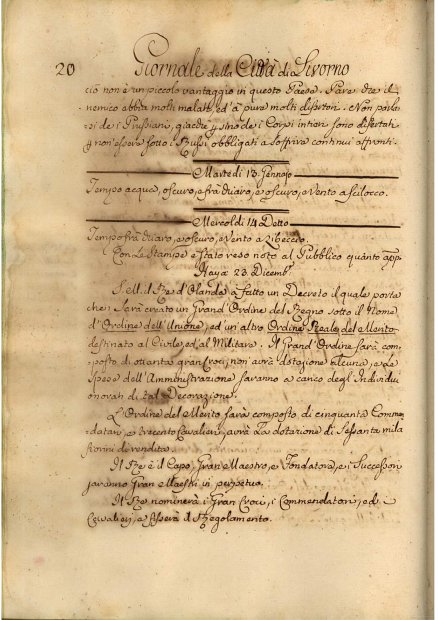 20 Giornale della Città di Livorno
ciò non è un piccolo vantaggio in questo Paese. Pare che il
nemico abbia molti malati, ed' à pure molti disertori. Non parla
si de i Prussiani, giacchè sino de i Corpi intieri sono disertati
p non essere sotto i Russi obbligati a soffrire continui affronti.
Martedì 13 Gennaio
Tempo acqua, oscuro, e frà chiaro, e oscuro, e Vento a scilocco.
Mercoldì 14 Detto
Tempo frà chiaro, e oscuro, e Vento a Libeccio.
Con Le Stampe è stato reso noto al Pubblico quanto app.
Haya 23. Dicemb.
S. M. il Re d'Olanda à fatto un Decreto il quale porta
che: Sarà creato un Grand' Ordine del Regno sotto il Nome
d' Ordine dell' Unione, ed un' altro Ordine Reale del Merito
destinato al Civile, ed al Militare. Il Grand' Ordine sarà com-
posto di ottanta gran Croci, non avrà dotazione alcuna, e le
Spese dell' Amministrazione saranno a carico degl' Individui
onorati di tal Decorazione.
L' Ordine del Merito sarà composto di cinquanta Comme-
datari, e trecento Cavalieri, avrà La dotazione di Sessanta mila
fiorini di rendita.
Il Re è il Capo, Gran Maestro, e Fondatore, e i Successori
saranno Gran Maestri in perpetuo.
Il Re nominerà i Gran Croci, i Commendatari, ed i
Cavalieri, e il Regolamento.